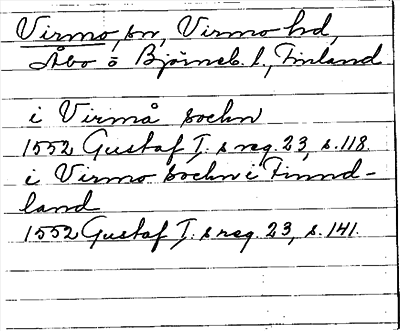 Virmo, sn, Virmo hd,
Åbo o Björneb. l., Finland
i Virmå sochn
1552 Gustaf I. s reg. 23, s. 118.
i Virmo sochn i Finnd-
land
1552 Gustaf I. s reg. 23, s. 141.